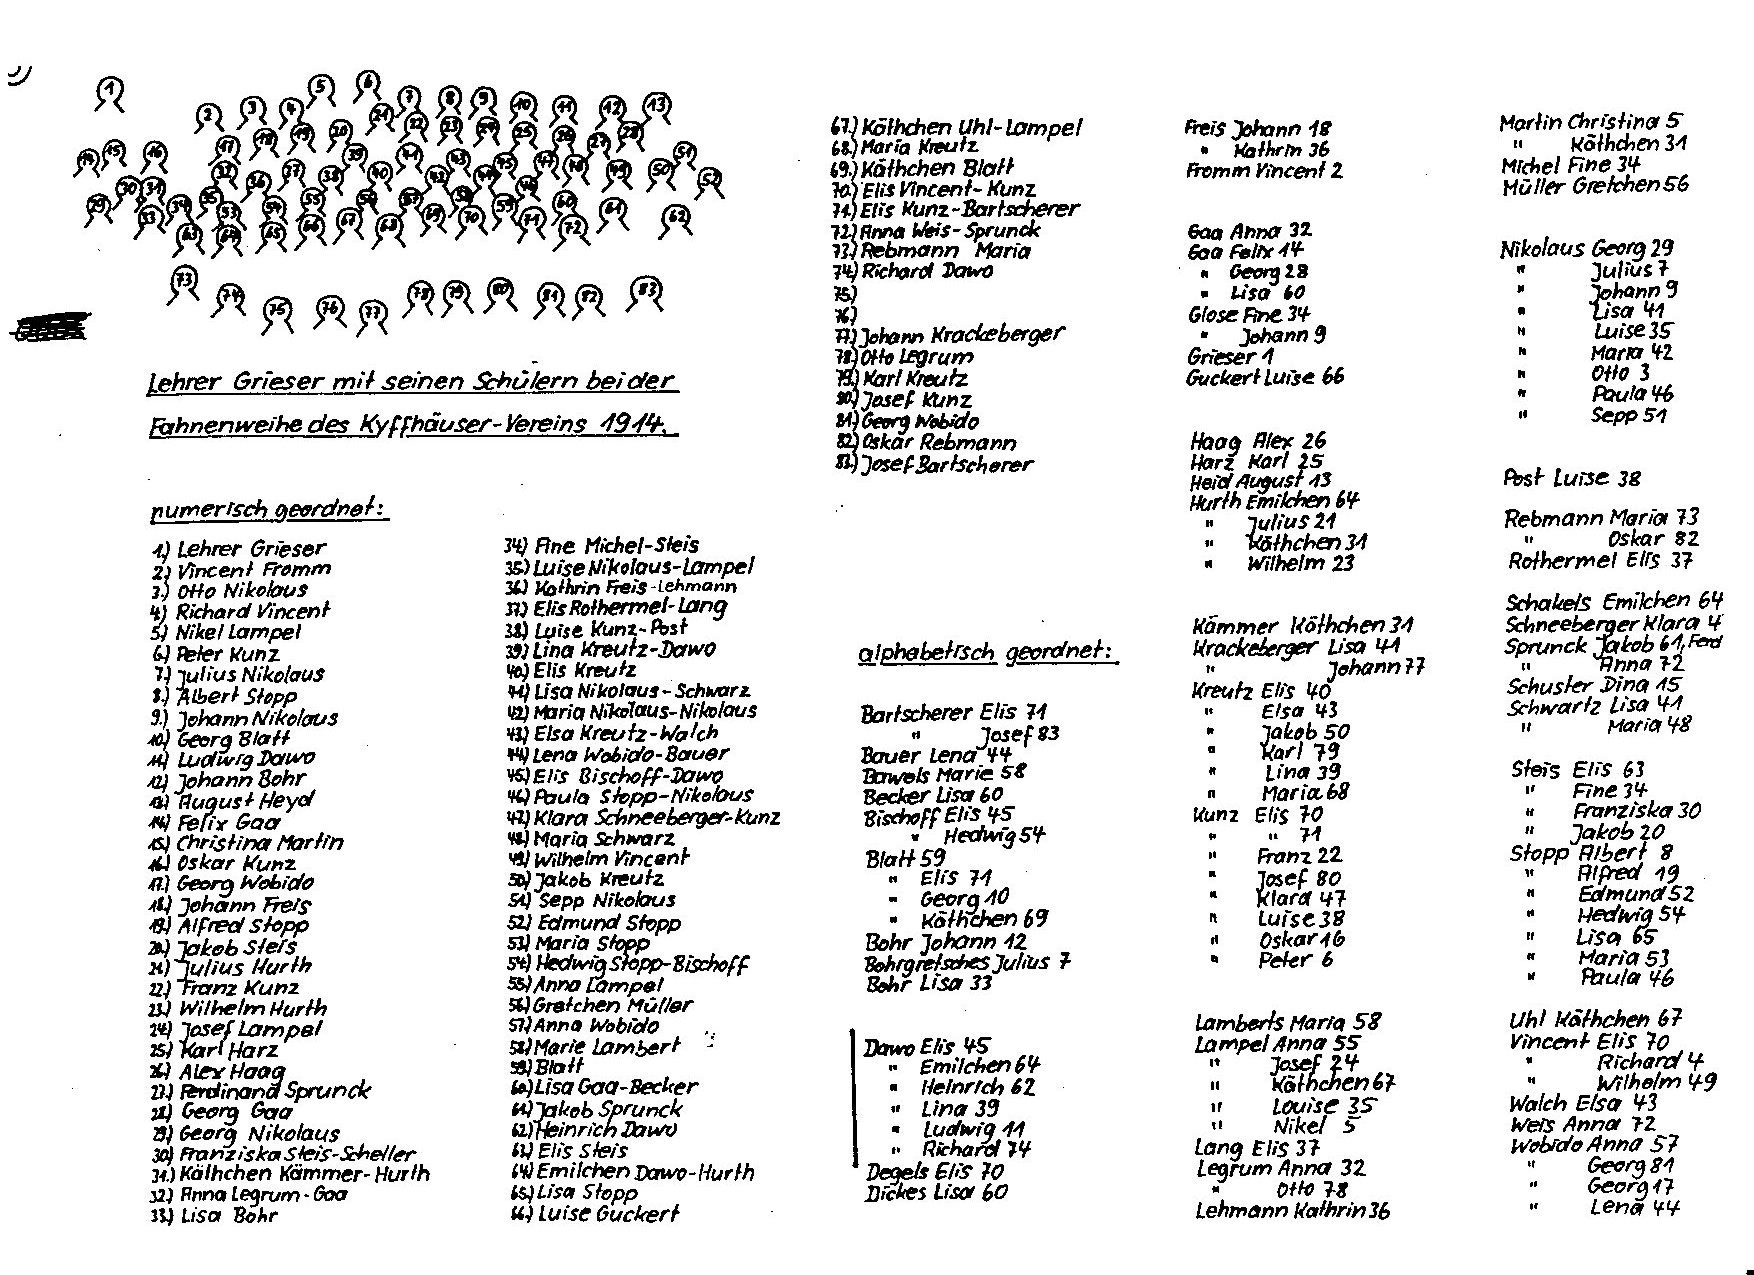 Lehrer Grieser mit seinen Schülern bei der
Fahnenweihe des Kyffhäuser-Vereins 1914.
numerisch geordnet:
1.) Lehrer Grieser
2.) Vincent Fromm
3.) Otto Nikolaus
4.) Richard Vincent
5.) Nikel Lampel
6.) Peter Kunz
7.) Julius Nikolaus
8.) Albert Stopp
9.) Johann Nikolaus
10.) Georg Blatt
11.) Ludwig Dawo
12.) Johann Bohr
13.) August Heyd
14.) Felix Gaa
15.) Christina Martin
16.) Oskar Kunz
17.) Georg Wobido
18.) Johann Freis
19.) Alfred Stopp
20.) Jakob Steis
21.) Julius Hurth
22.) Franz Kunz
23.) Wilhelm Hurth
24.) Josef Lampel
25.) Karl Harz
26.) Alex Haag
27.) Ferdinand Sprunck
28.) Georg Gaa
29.) Georg Nikolaus
30.) Franziska Steis-Scheller
31.) Käthchen Kämmer-Hurth
32.) Anna Legrum-Gaa
33.) Lisa Bohr
34.) Fine Michel-Steis
35.) Luise Nikolaus-Lampel
36.) Kathrin Freis-Lehmann
37.) Elis Rothermel-Lang
38.) Luise Kunz-Post
39.) Lina Kreutz-Dawo
40.) Elis Kreutz
41.) Lisa Nikolaus-Schwarz
42.) Maria Nikolaus-Nikolaus
43.) Elsa Kreutz-Walch
44.) Lena Wobido-Bauer
45.) Elis Bischoff-Dawo
46.) Paula Stopp-Nikolaus
47.) Klara Schneeberger-Kunz
48.) Maria Schwarz
49.) Wilhelm Vincent
50.) Jakob Kreutz
51.) Sepp Nikolaus
52.) Edmund Stopp
53.) Maria Stopp
54.) Hedwig Stopp-Bischoff
55.) Anna Lampel
56.) Gretchen Müller
57.) Anna Wobido
58.) Marie Lambert
59.) Blatt
60.) Lisa Gaa-Becker
61.) Jakob Sprunck
62.) Heinrich Dawo
63.) Elis Steis
64.) Emilchen Dawo-Hurth
65.) Lisa Stopp
66.) Luise Guckert
67.) Käthchen Uhl-Lampel
68.) Maria Kreutz
69.) Käthchen Blatt
70.) Elis Vincent-Kunz
71.) Elis Kunz-Bartscherer
72.) Anna Weis-Sprunck
73.) Rebmann Maria
74.) Richard Dawo
75.)
76.)
77.) Johann Krackeberger
78.) Otto Legrum
79.) Karl Kreutz
80.) Josef Kunz
81.) Georg Wobido
82.) Oskar Rebmann
83.) Josef Bartscherer
alphabetisch geordnet:
Bartscherer Elis 71
" Josef 83
Bauer Lena 44
Bawels Marie 58
Becker Lisa 60
Bischoff Elis 45
" Hedwig 54
Blatt 59
" Elis 71
" Georg 10
" Käthchen 69
Bohr Johann 12
Bohrgretsches Julius 7
Bohr Lisa 33
Dawo Elis 45
" Emilchen 64
" Heinrich 62
" Lina 39
" Ludwig 11
" Richard 74
Degels Elis 70
Dickes Lisa 60
Freis Johann 18
" Kathrin 36
Fromm Vincent 2
Gaa Anna 32
Gaa Felix 14
" Georg 28
" Lisa 60
Glose Fine 34
" Johann 9
Grieser 1
Guckert Luise 66
Haag Alex 26
Harz Karl 25
Heid August 13
Hurth Emilchen 64
" Julius 21
" Käthchen 31
" Wilhelm 23
Kämmer Käthchen 31
Krackeberger Lisa 41
" Johann 77
Kreutz Elis 40
" Elsa 43
" Jakob 50
" Karl 79
" Lina 39
" Maria 68
Kunz Elis 70
" " 71
" Franz 22
" Josef 80
" Klara 47
" Luise 38
" Oskar 16
" Peter 6
Lamberts Maria 58
Lampel Anna 55
" Josef 24
" Käthchen 67
" Louise 35
" Nikel 5
Lang Elis 37
Legrum Anna 32
" Otto 78
Lehmann Kathrin 36
Martin Christina 5
" Käthchen 31
Michel Fine 34
Müller Gretchen 56
Nikolaus Georg 29
" Julius 7
" Johann 9
" Lisa 41
" Luise 35
" Maria 42
" Otto 3
" Paula 46
" Sepp 51
Post Luise 38
Rebmann Maria 73
" Oskar 82
Rothermel Elis 37
Schakels Emilchen 64
Schneeberger Klara 4
Sprunck Jakob 61, Ferd
" Anna 72
Schuster Dina 15
Schwartz Lisa 41
" Maria 48
Steis Elis 63
" Fine 34
" Franziska 30
" Jakob 20
Stopp Albert 8
" Alfred 19
" Edmund 52
" Hedwig 54
" Lisa 65
" Maria 53
" Paula 46
Uhl Käthchen 67
Vincent Elis 70
" Richard 4
" Wilhelm 49
Walch Elsa 43
Weis Anna 72
Wobido Anna 57
" Georg 81
" Georg 17
" Lena 44